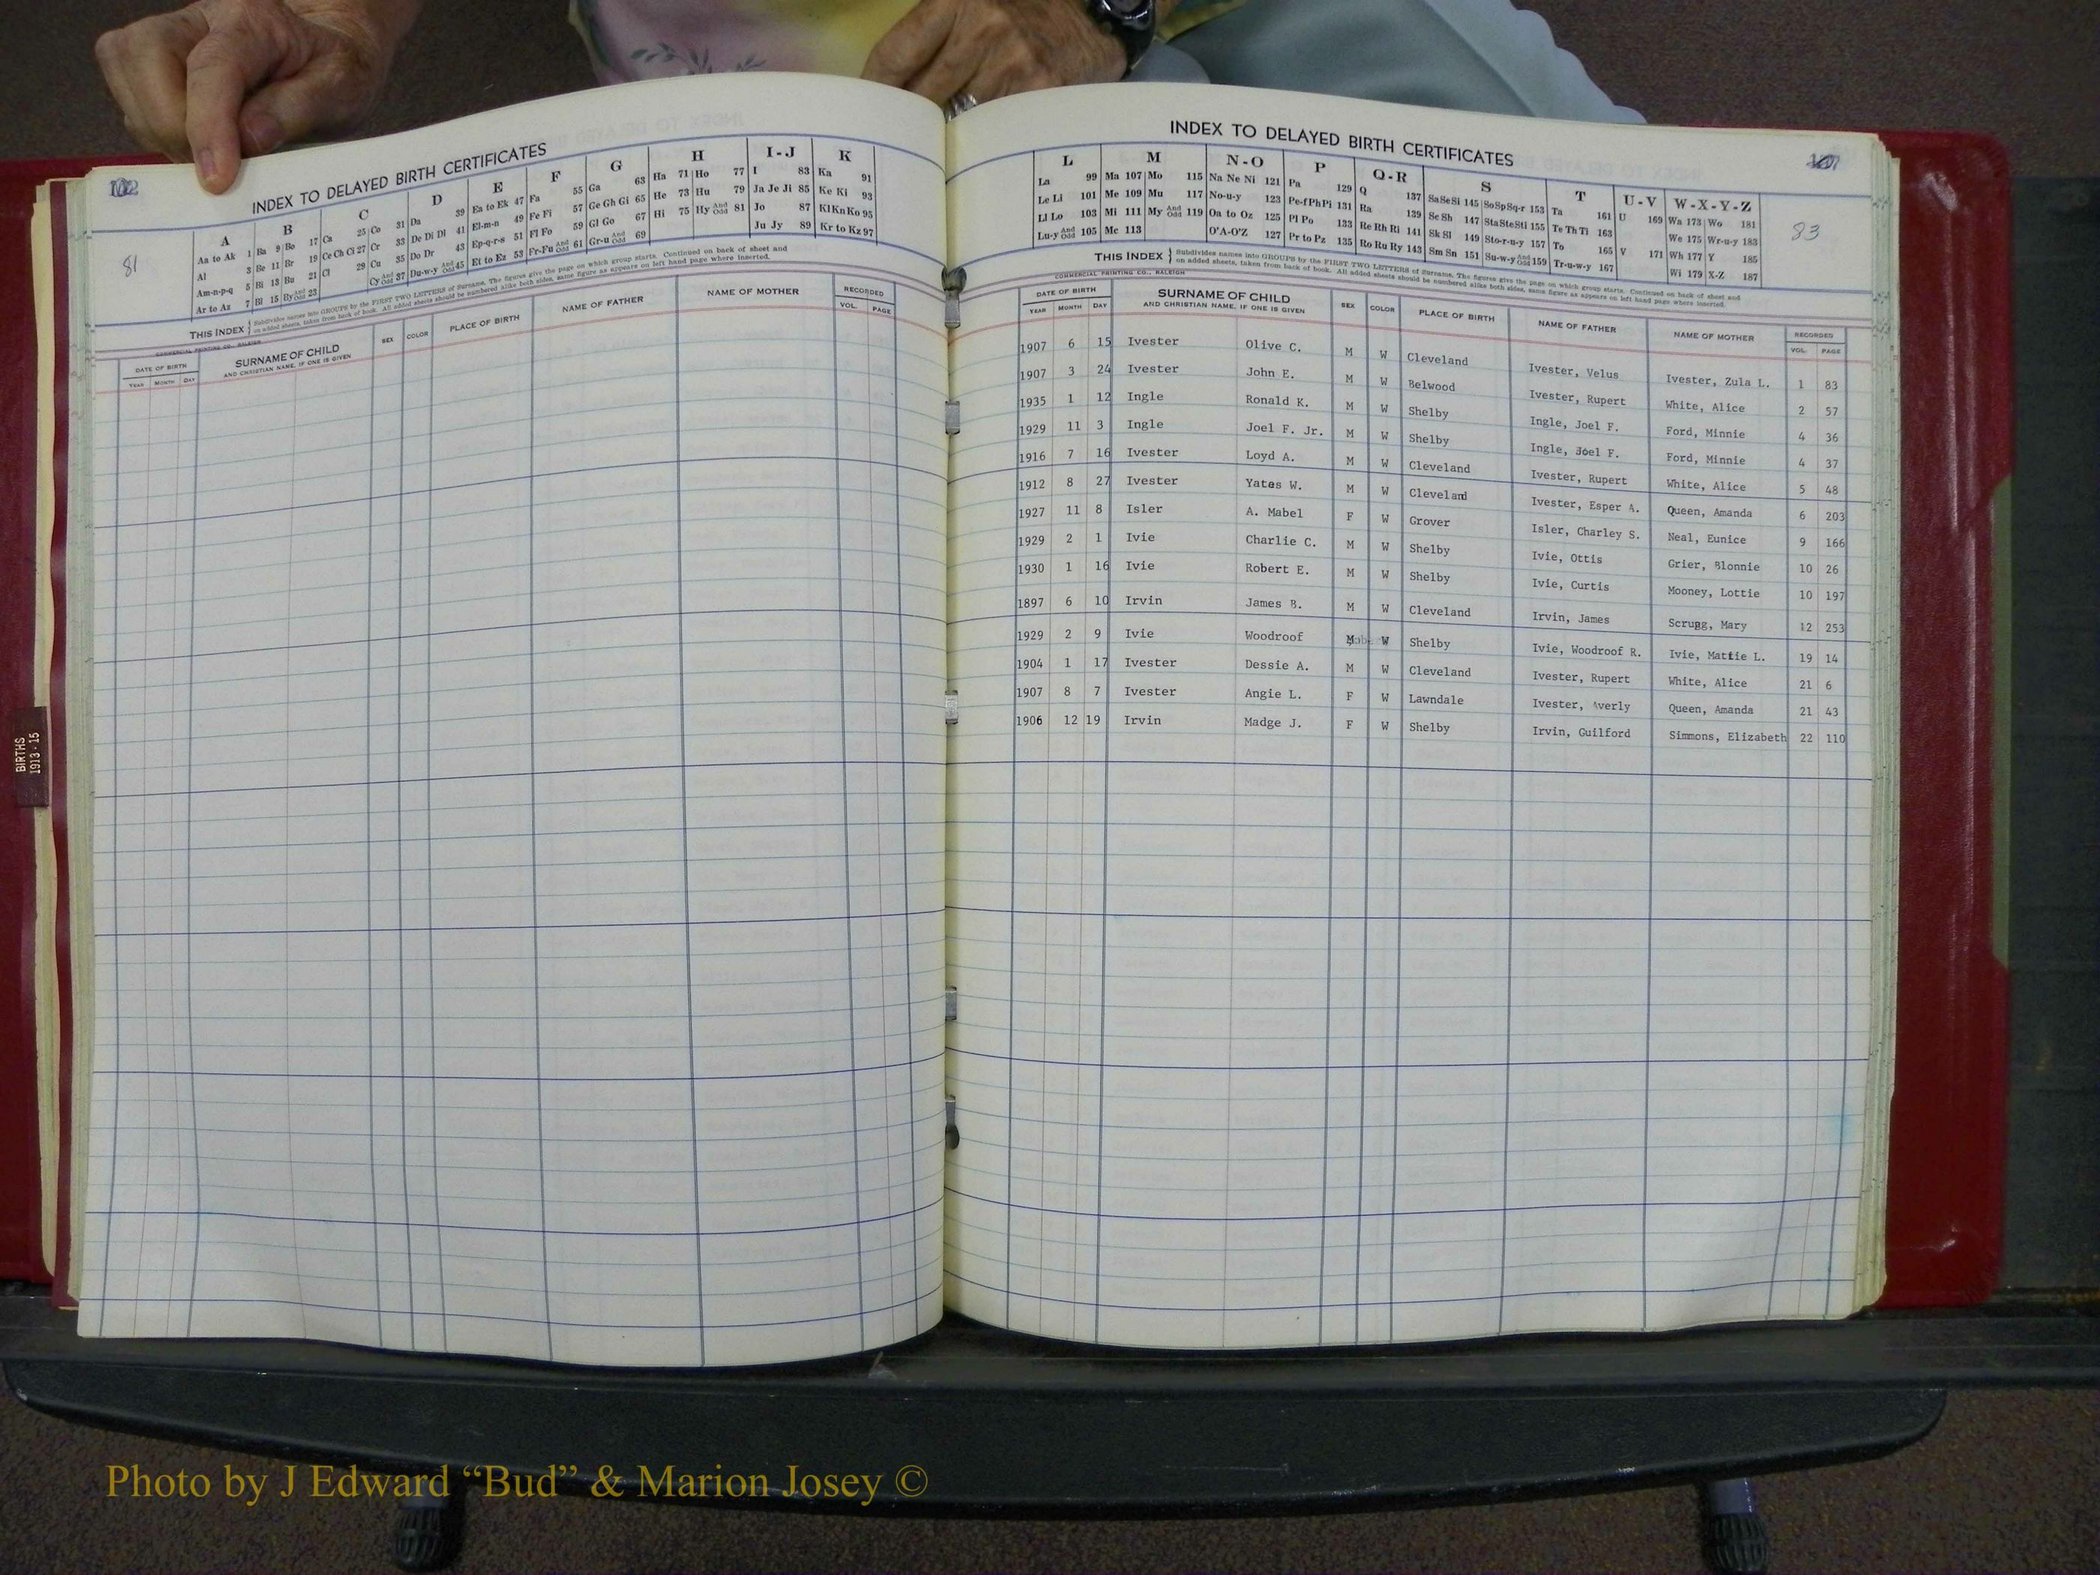 INDEX TO DELAYED BIRTH CERTIFICATES
81
A B C D E F G H I-J K
Aa to Ak 1 Ba 9 Bo 17 Ca 25 Co 31 Da 39 Ea to Ek 47 Fa 55 Ga 63 Ha 71 Ho 77 I 83 Ka 91
Al 3 Be 11 Br 19 Ce Ch Ci 27 Cr 33 De Di Dl 41 El-m-n 49 Fe Fi 57 Ge Gh Gi 65 He 73 Hu 79 Ja Je Ji 85 Ke Ki 93
Am-n-p-q 5 Bi 13 Bu 21 Cl 29 Cu 35 Do Dr 43 Ep-q-r-s 51 Fl Fo 59 Gl Go 67 Hi 75 Hy And Odd 81 Jo 87 Kl Kn Ko 95
Ar to Az 7 Bl 15 By And Odd 23 Cy And Odd 37 Du-w-y And Odd 45 Et to Ez 53 Fr-Fu And Odd 61 Gr-u And Odd 69 Ju Jy 89 Kr to Kz 97
THIS INDEX } Subdivides names into GROUPS by the FIRST TWO LETTERS of Surname. The figures give the page on which group starts. Continued on back of sheet and
on added sheets, taken from back of book. All added sheets should be numbered alike both sides, same figure as appears on left hand page where inserted.
COMMERCIAL PRINTING CO., RALEIGH
DATE OF BIRTH SURNAME OF CHILD SEX COLOR PLACE OF BIRTH NAME OF FATHER NAME OF MOTHER RECORDED
YEAR MONTH DAY AND CHRISTIAN NAME, IF ONE IS GIVEN VOL. PAGE
INDEX TO DELAYED BIRTH CERTIFICATES
83
L M N-O P Q-R S T U-V W-X-Y-Z
La 99 Ma 107 Mo 115 Na Ne Ni 121 Pa 129 Q 137 Sa Se Si 145 So Sp Sq-r 153 Ta 161 U 169 Wa 173 Wo 181
Le Li 101 Me 109 Mu 117 No-u-y 123 Pe-f Ph Pi 131 Ra 139 Sc Sh 147 Sta Ste Sti 155 Te Th Ti 163 We 175 Wr-u-y 183
Ll Lo 103 Mi 111 My And Odd 119 Oa to Oz 125 Pl Po 133 Re Rh Ri 141 Sk Sl 149 Sto-r-u-y 157 To 165 V 171 Wh 177 Y 185
Lu-y And Odd 105 Mc 113 O'A-O'Z 127 Pr to Pz 135 Ro Ru Ry 143 Sm Sn 151 Su-w-y And Odd 159 Tr-u-w-y 167 Wi 179 X-Z 187
THIS INDEX } Subdivides names into GROUPS by the FIRST TWO LETTERS of Surname. The figures give the page on which group starts. Continued on back of sheet and
on added sheets, taken from back of book. All added sheets should be numbered alike both sides, same figure as appears on left hand page where inserted.
COMMERCIAL PRINTING CO., RALEIGH
DATE OF BIRTH SURNAME OF CHILD SEX COLOR PLACE OF BIRTH NAME OF FATHER NAME OF MOTHER RECORDED
YEAR MONTH DAY AND CHRISTIAN NAME, IF ONE IS GIVEN VOL. PAGE
1907 6 15 Ivester Olive C. M W Cleveland Ivester, Velus Ivester, Zula L. 1 83
1907 3 24 Ivester John E. M W Belwood Ivester, Rupert White, Alice 2 57
1935 1 12 Ingle Ronald K. M W Shelby Ingle, Joel F. Ford, Minnie 4 36
1929 11 3 Ingle Joel F. Jr. M W Shelby Ingle, Joel F. Ford, Minnie 4 37
1916 7 16 Ivester Loyd A. M W Cleveland Ivester, Rupert White, Alice 5 48
1912 8 27 Ivester Yates W. M W Cleveland Ivester, Esper A. Queen, Amanda 6 203
1927 11 8 Isler A. Mabel F W Grover Isler, Charley S. Neal, Eunice 9 166
1929 2 1 Ivie Charlie C. M W Shelby Ivie, Ottis Grier, Blonnie 10 26
1930 1 16 Ivie Robert E. M W Shelby Ivie, Curtis Mooney, Lottie 10 197
1897 6 10 Irvin James B. M W Cleveland Irvin, James Scrugg, Mary 12 253
1929 2 9 Ivie Woodroof M W Shelby Ivie, Woodroof R. Ivie, Mattie L. 19 14
1904 1 17 Ivester Dessie A. M W Cleveland Ivester, Rupert White, Alice 21 6
1907 8 7 Ivester Angie L. F W Lawndale Ivester, Averly Queen, Amanda 21 43
1906 12 19 Irvin Madge J. F W Shelby Irvin, Guilford Simmons, Elizabeth 22 110
BIRTHS
1913-15
Photo by J Edward “Bud” & Marion Josey ©